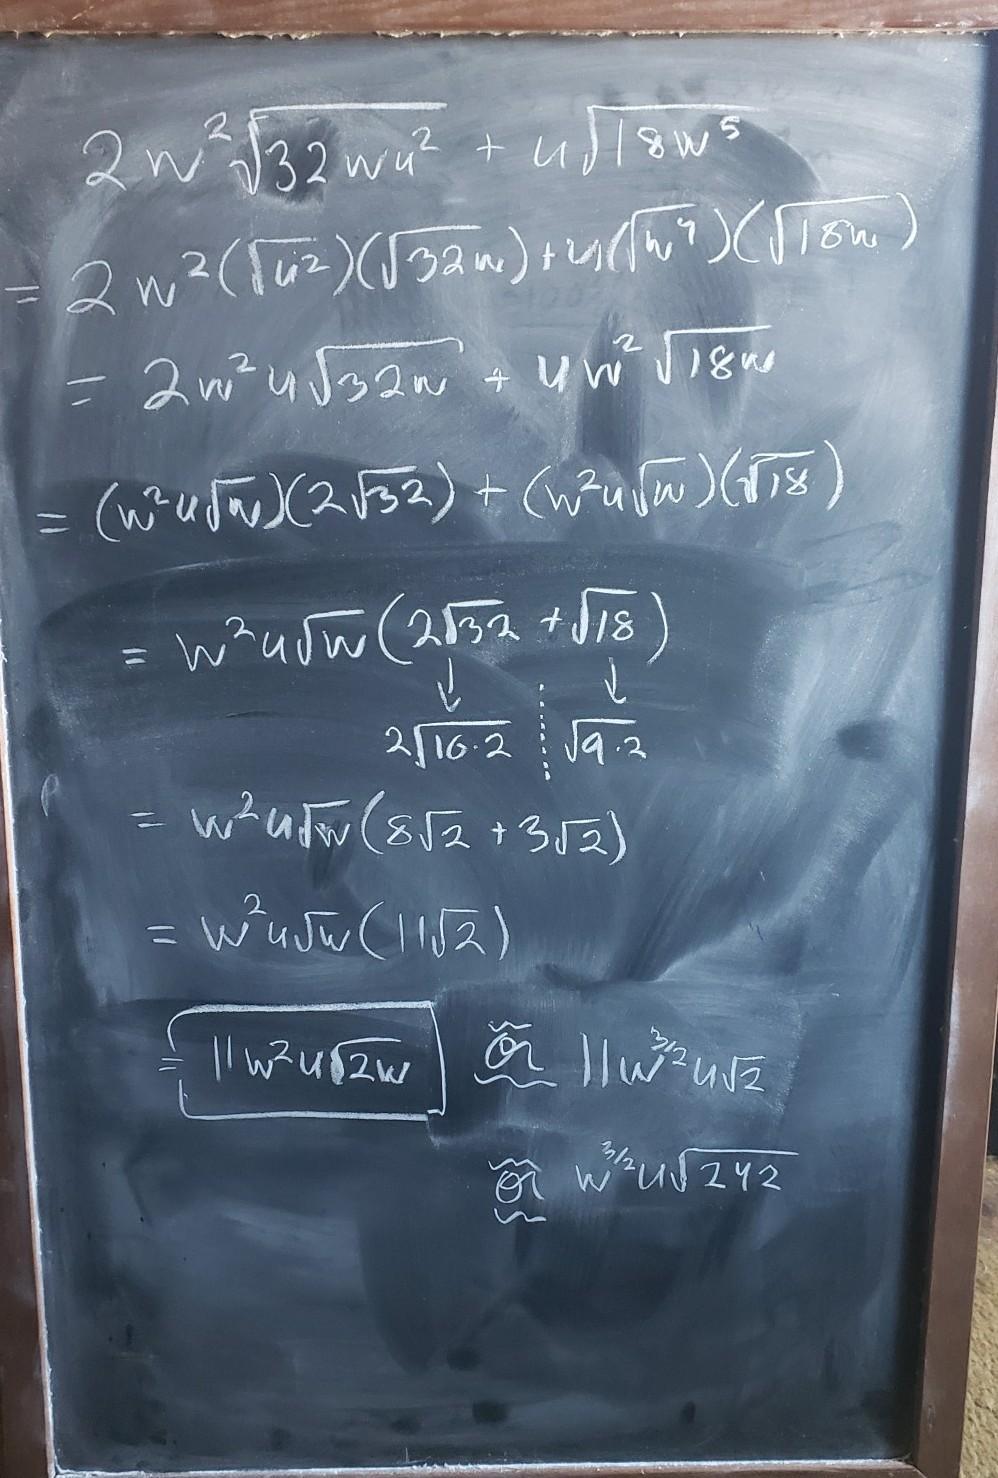 2w²√(32wu²) + u√(18w⁵)
= 2w²(√u²)(√32w) + u(√w⁴)(√18w)
= 2w²u√32w + uw²√18w
= (w²u√w)(2√32) + (w²u√w)(√18)
= w²u√w(2√32 + √18)
↓ ↓
2√16·2 ⋮ √9·2
= w²u√w(8√2 + 3√2)
= w²u√w(11√2)
= 11w²u√2w or 11w^3/2 u√2
or w^3/2 u√242